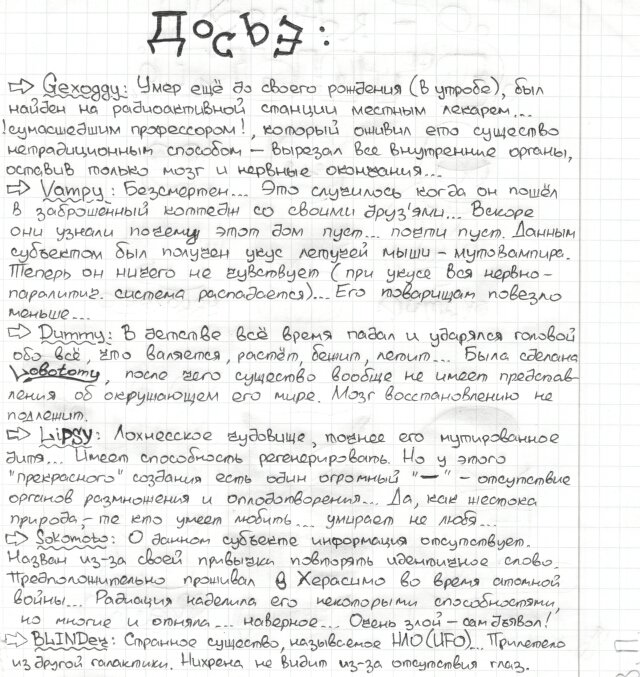 Досьэ:
⇨ Gexoggy: Умер ещё до своего рождения (в утробе), был
найден на радиоактивной станции местным лекарем...
!сумасшедшим профессором!, который оживил ето существо
нетрадиционным способом – вырезал все внутренние органы,
оставив только мозг и нервные окончания...
⇨ Vampy: Безсмертен... Это случилось когда он пошёл
в заброшенный коттедж со своими друз'ями... Вскоре
они узнали почему этот дом пуст... почти пуст. Данным
субъектом был получен укус летучей мыши – мутовампира.
Теперь он ничего не чувствует (при укусе вся нервно-
паралитич. система распадается)... Его товарищам повезло
меньше...
⇨ Dummy: В детстве всё время падал и ударялся головой
обо всё, что валяется, растёт, бежит, летит... Была сделана
Lobotomy, после чего существо вообще не имеет представ-
ления об окружающем его мире. Мозг восстановлению не
подлежит.
⇨ LiPSY: Лохнесское чудовище, точнее его мутированное
дитя... Имеет способность регенерировать. Но у этого
"прекрасного" создания есть один огромный "—" – отсутствие
органов размножения и оплодотворения... Да, как жестока
природа, – те кто умеет любить... умирает не любя...
⇨ Sokomoto: О данном субъекте информация отсутствует.
Назван из-за своей привычки повторять идентичное слово.
Предположительно проживал в Херасимо во время атомной
войны... Радиация наделила его некоторыми способностями,
но многие и отняла... наверное... Очень злой – сам дьявол!
⇨ BLINDey: Странное существо, называемое НЛО (UFO)... Прилетело
из другой галактики. Нихрена не видит из-за отсутствия глаз.